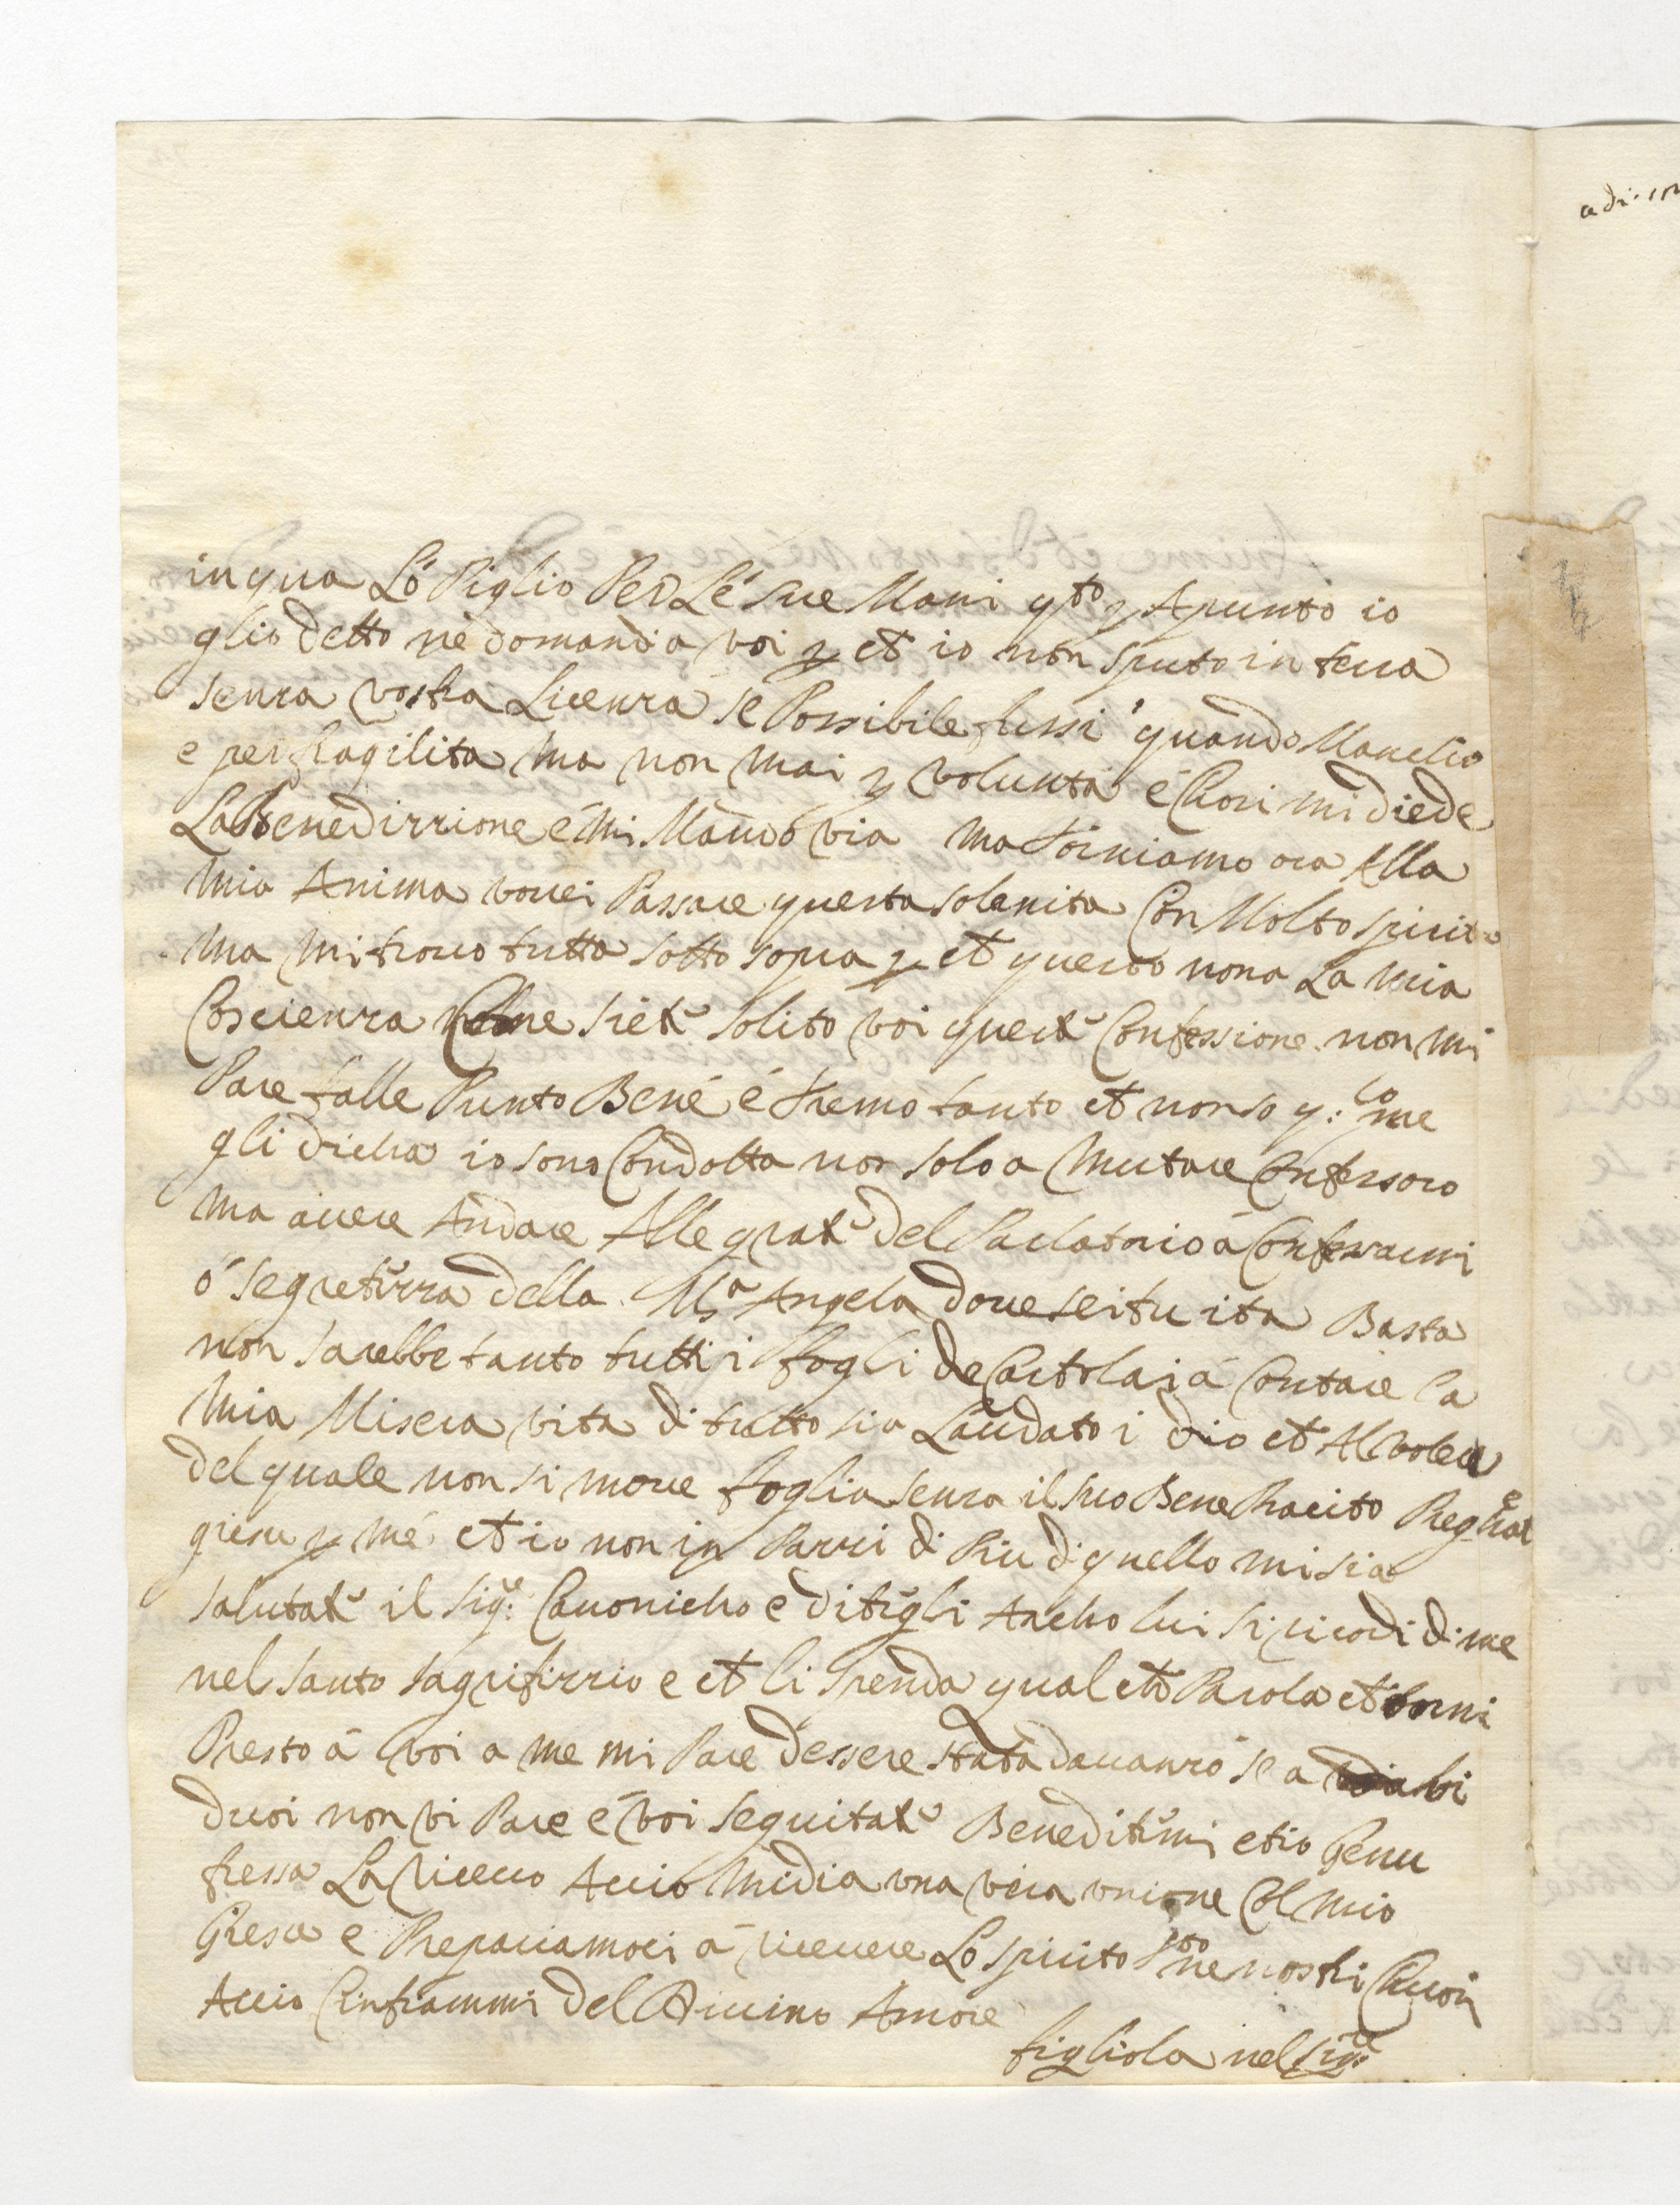 adi·
in qua Lò Piglio Per Lé sue Mani qto p Apunto io
glio detto ne domanda voi p et io non sputo in terra
senza vostra Licenza se Possibile fussi quando Mancho
e per fragilita ma non mai p volunta é Chosi mi diede
La Benedizzione é mi Mandò via ma torniamo ora Alla
mia Anima vorrei Passare questa solenita Con Molto spirito
ma mi trovo tutta sotto sopra p et questo non a La mia
Coscienza Che ne siete solito voi queste Confessione non mi
Pare falle Punto Bené é tremo tanto et non so p: come
gli dicha io sono Condotta non solo a Mutare Confessoro
ma avere Andare Alle grate del Parlatorio á Confessarmi
ó segretuzza della Ma Angela dove sei tu ita Basta
non sarebbe tanto tutti i fogli de Cartolai á Contare la
mia Misera vita di tutto sia Laudato i dio et Al volere
del quale non si move foglia senza il suo Bene Pracito Preghate
giesu p mé et io non in Pazzi di Piu di quello mi sia
salutate il sigre: Canonicho e ditegli Ancho lui si ricordi di me
nel santo sagrifizzio e et li spenda qual che Parola et torni
Presto á voi a me mi Pare d'essere stata davanzo se a voi
duoi non vi Pare é voi seguitate Beneditemi et io genu
fressa La ricevo Accio mi dia una vera unione Col mio
Giesu e Prepariamoci á ricevere Lo spirito sto ne nostri Chuori
Accio C'infiammi del Divino Amore
figliola nel sigre